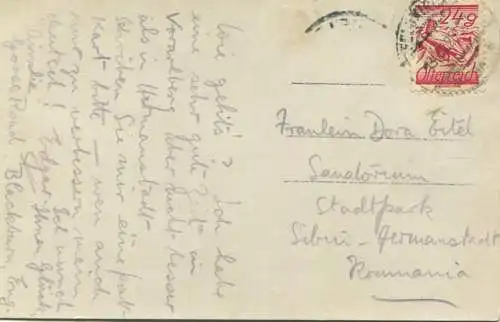 Wie geht's? Ich habe
eine sehr gute Zeit in
Vorarlberg aber nicht besser
als in Hermanstadt.
Schreiben Sie mir eine post
Kart bitte — wen auch
nur zu verbessern mein
deutsch! Sie wunsch
Edgar Ihnen Glück
Gorse Road, Blackburn, Eng.
24g
Österreich
Fraulein Dora Eitel
Sanatorium
Stadtpark
Sibiu-Hermanstadt
Roumania